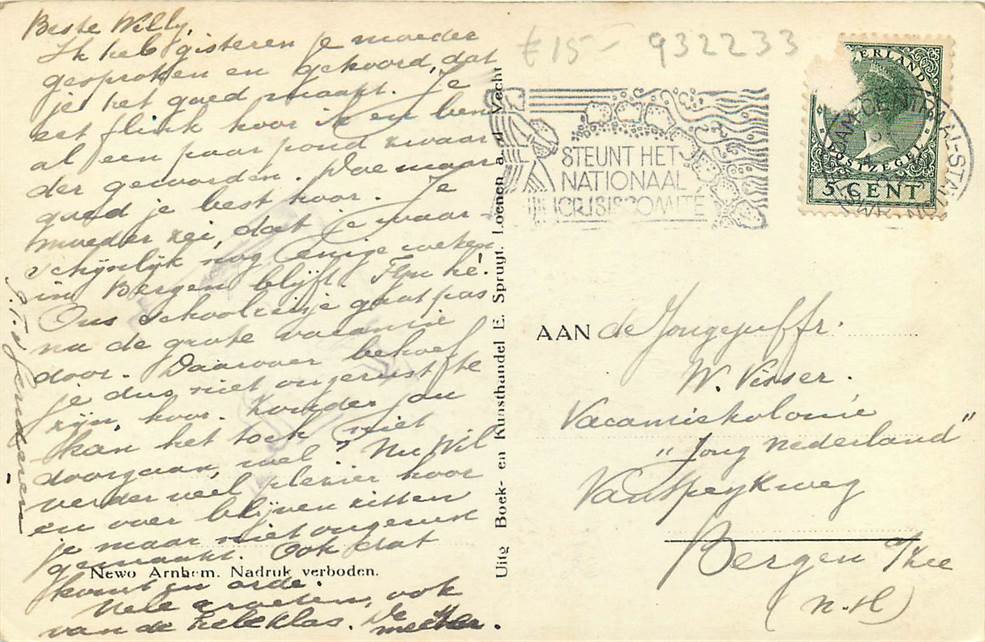 Beste Willy,
Ik heb gisteren je moeder
gesproken en gehoord, dat
je het goed maakt. Je
eet flink hoor ik en ben
al een paar pond zwaar
der geworden. Doe maar
goed je best hoor. Je
moeder zei, dat je waar-
schijnlijk nog eenige weken
in Bergen blijft. Fijn hè.
Ons schoolreisje gaat pas
na de grote vacantie
door. Daarover behoef
je dus niet ongerust te
zijn, hoor. Zonder jou
kan het toch niet
doorgaan, wel? Nu Wil
verder veel plezier hoor
en over blijven zitten
je maar niet ongerust
gemaakt. Ook dat
komt in orde.
Vele groeten, ook
van de hele klas. De
meester.
Newo Arnhem. Nadruk verboden.
Uitg. Boek- en Kunsthandel E. Spruyt. Loenen a. d. Vecht
€15- 932233
STEUNT HET
NATIONAAL
CRISISCOMITÉ
POSTZEGEL
5 CENT
AAN de Jongejuffr.
W. Visser.
Vacantiekolonie
"Jong Nederland"
Van Speykweg
Bergen a/Zee
(N-H)